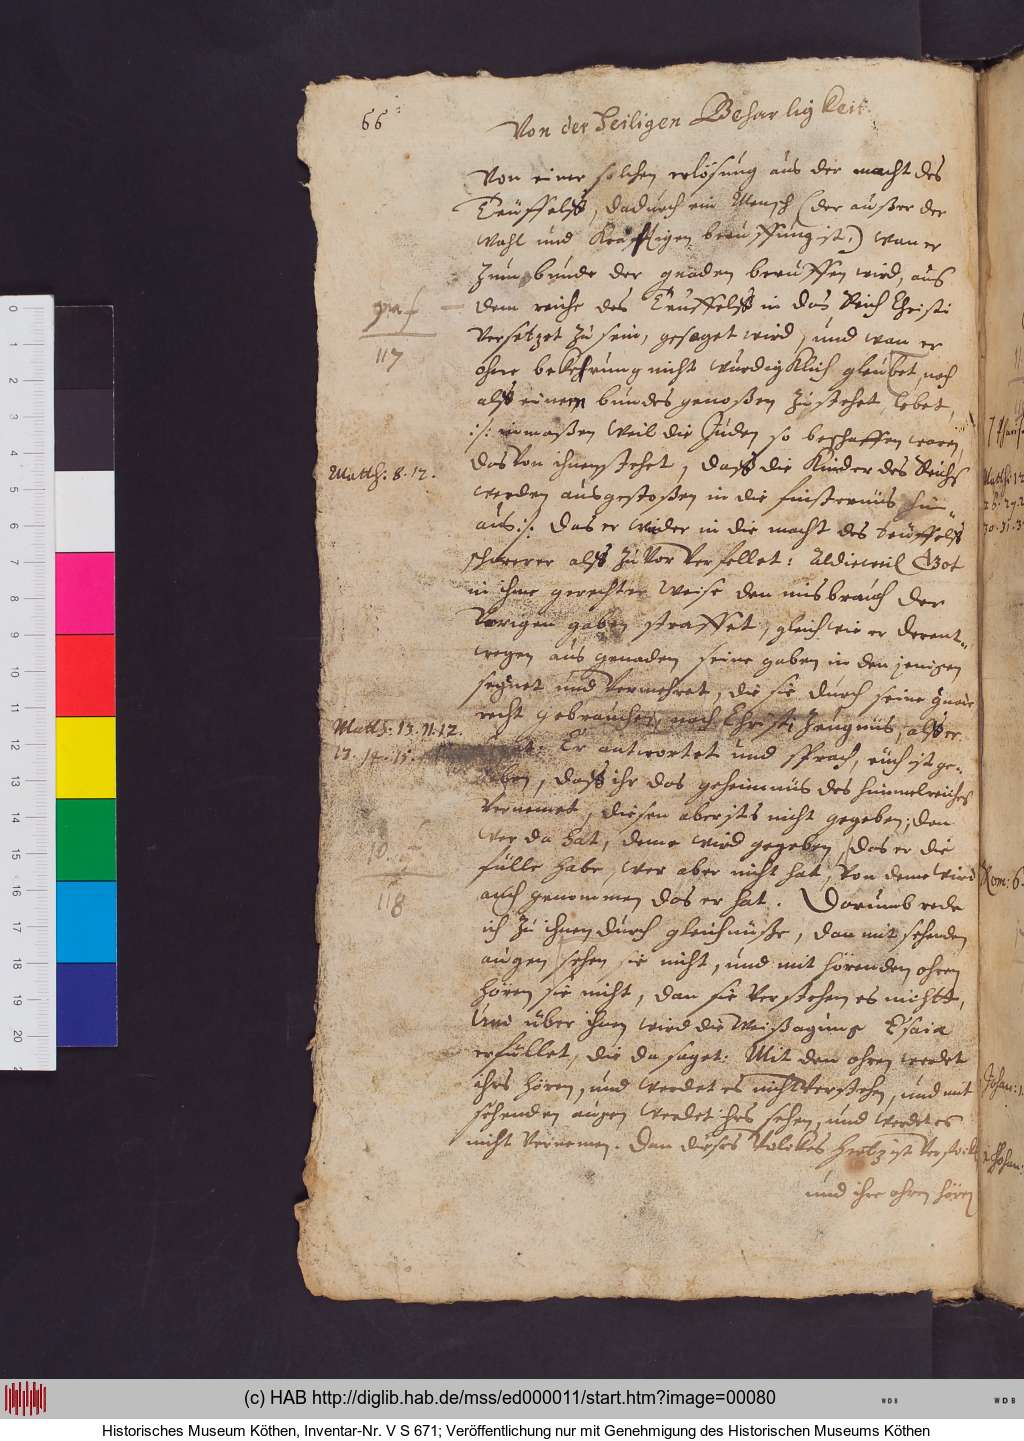 66
Von der heiligen Beharligkeit.
Von einer solchen erlösung aus der macht des
Teüffelß, dadurch ein Mensch (der außer der
Wahl und Krefftigen beruffung ist,) wan er
zum bunde der gnaden beruffen wird, aus
dem reiche des Teuffelß in das Reich Christi
Versetzet zu sein, gesaget wird, und wan er
117
ohne bekehrung nicht würdigklich gleubet, noch
alß einem bundesgenoßen zustehet, lebet,
:/: inmaßen weil die Juden so beschaffen waren,
das von ihnen stehet, daß die Kinder des Reichs
Matth: 8. 12.
werden ausgestoßen in die finsternüs hin=
aus :/: das er wider in die macht des teüffelß
schwerer alß zuvor verfellet: Aldieweil Got
in ihme gerechter weise den misbrauch der
Vorigen gaben straffet, gleich wie er derent=
wegen aus genaden seine gaben in den jenigen
segnet und vermehret, die sie durch seine gnade
recht gebrauchen, nach Christi Zeugnüs, alß er
Matth: 13. 11. 12.
13. 14. 15.
Er antwortet und sprach, euch ist ge=
geben, daß ihr das geheimnüs des himmelreiches
Vernemet, diesen aber ists nicht gegeben; den
wer da hat, deme wird gegeben, das er die
fülle habe, wer aber nicht hat, von deme wird
118
auch genommen das er hat. Darumb rede
ich zu ihnen durch gleichnüße, dan mit sehenden
augen sehen sie nicht, und mit hörenden ohren
hören sie nicht, dan sie verstehen es nichtt,
Und über ihnen wird die Weißagung Esaiae
erfüllet, die da saget: Mit den ohren werdet
ihrs hören, und werdet es nicht verstehen, und mit
sehenden augen werdet ihrs sehen, und werdet es
nicht vernemen. Dan dieses Volckes hertz ist verstockt
und ihre ohren hören
(c) HAB http://diglib.hab.de/mss/ed000011/start.htm?image=00080
Historisches Museum Köthen, Inventar-Nr. V S 671; Veröffentlichung nur mit Genehmigung des Historischen Museums Köthen